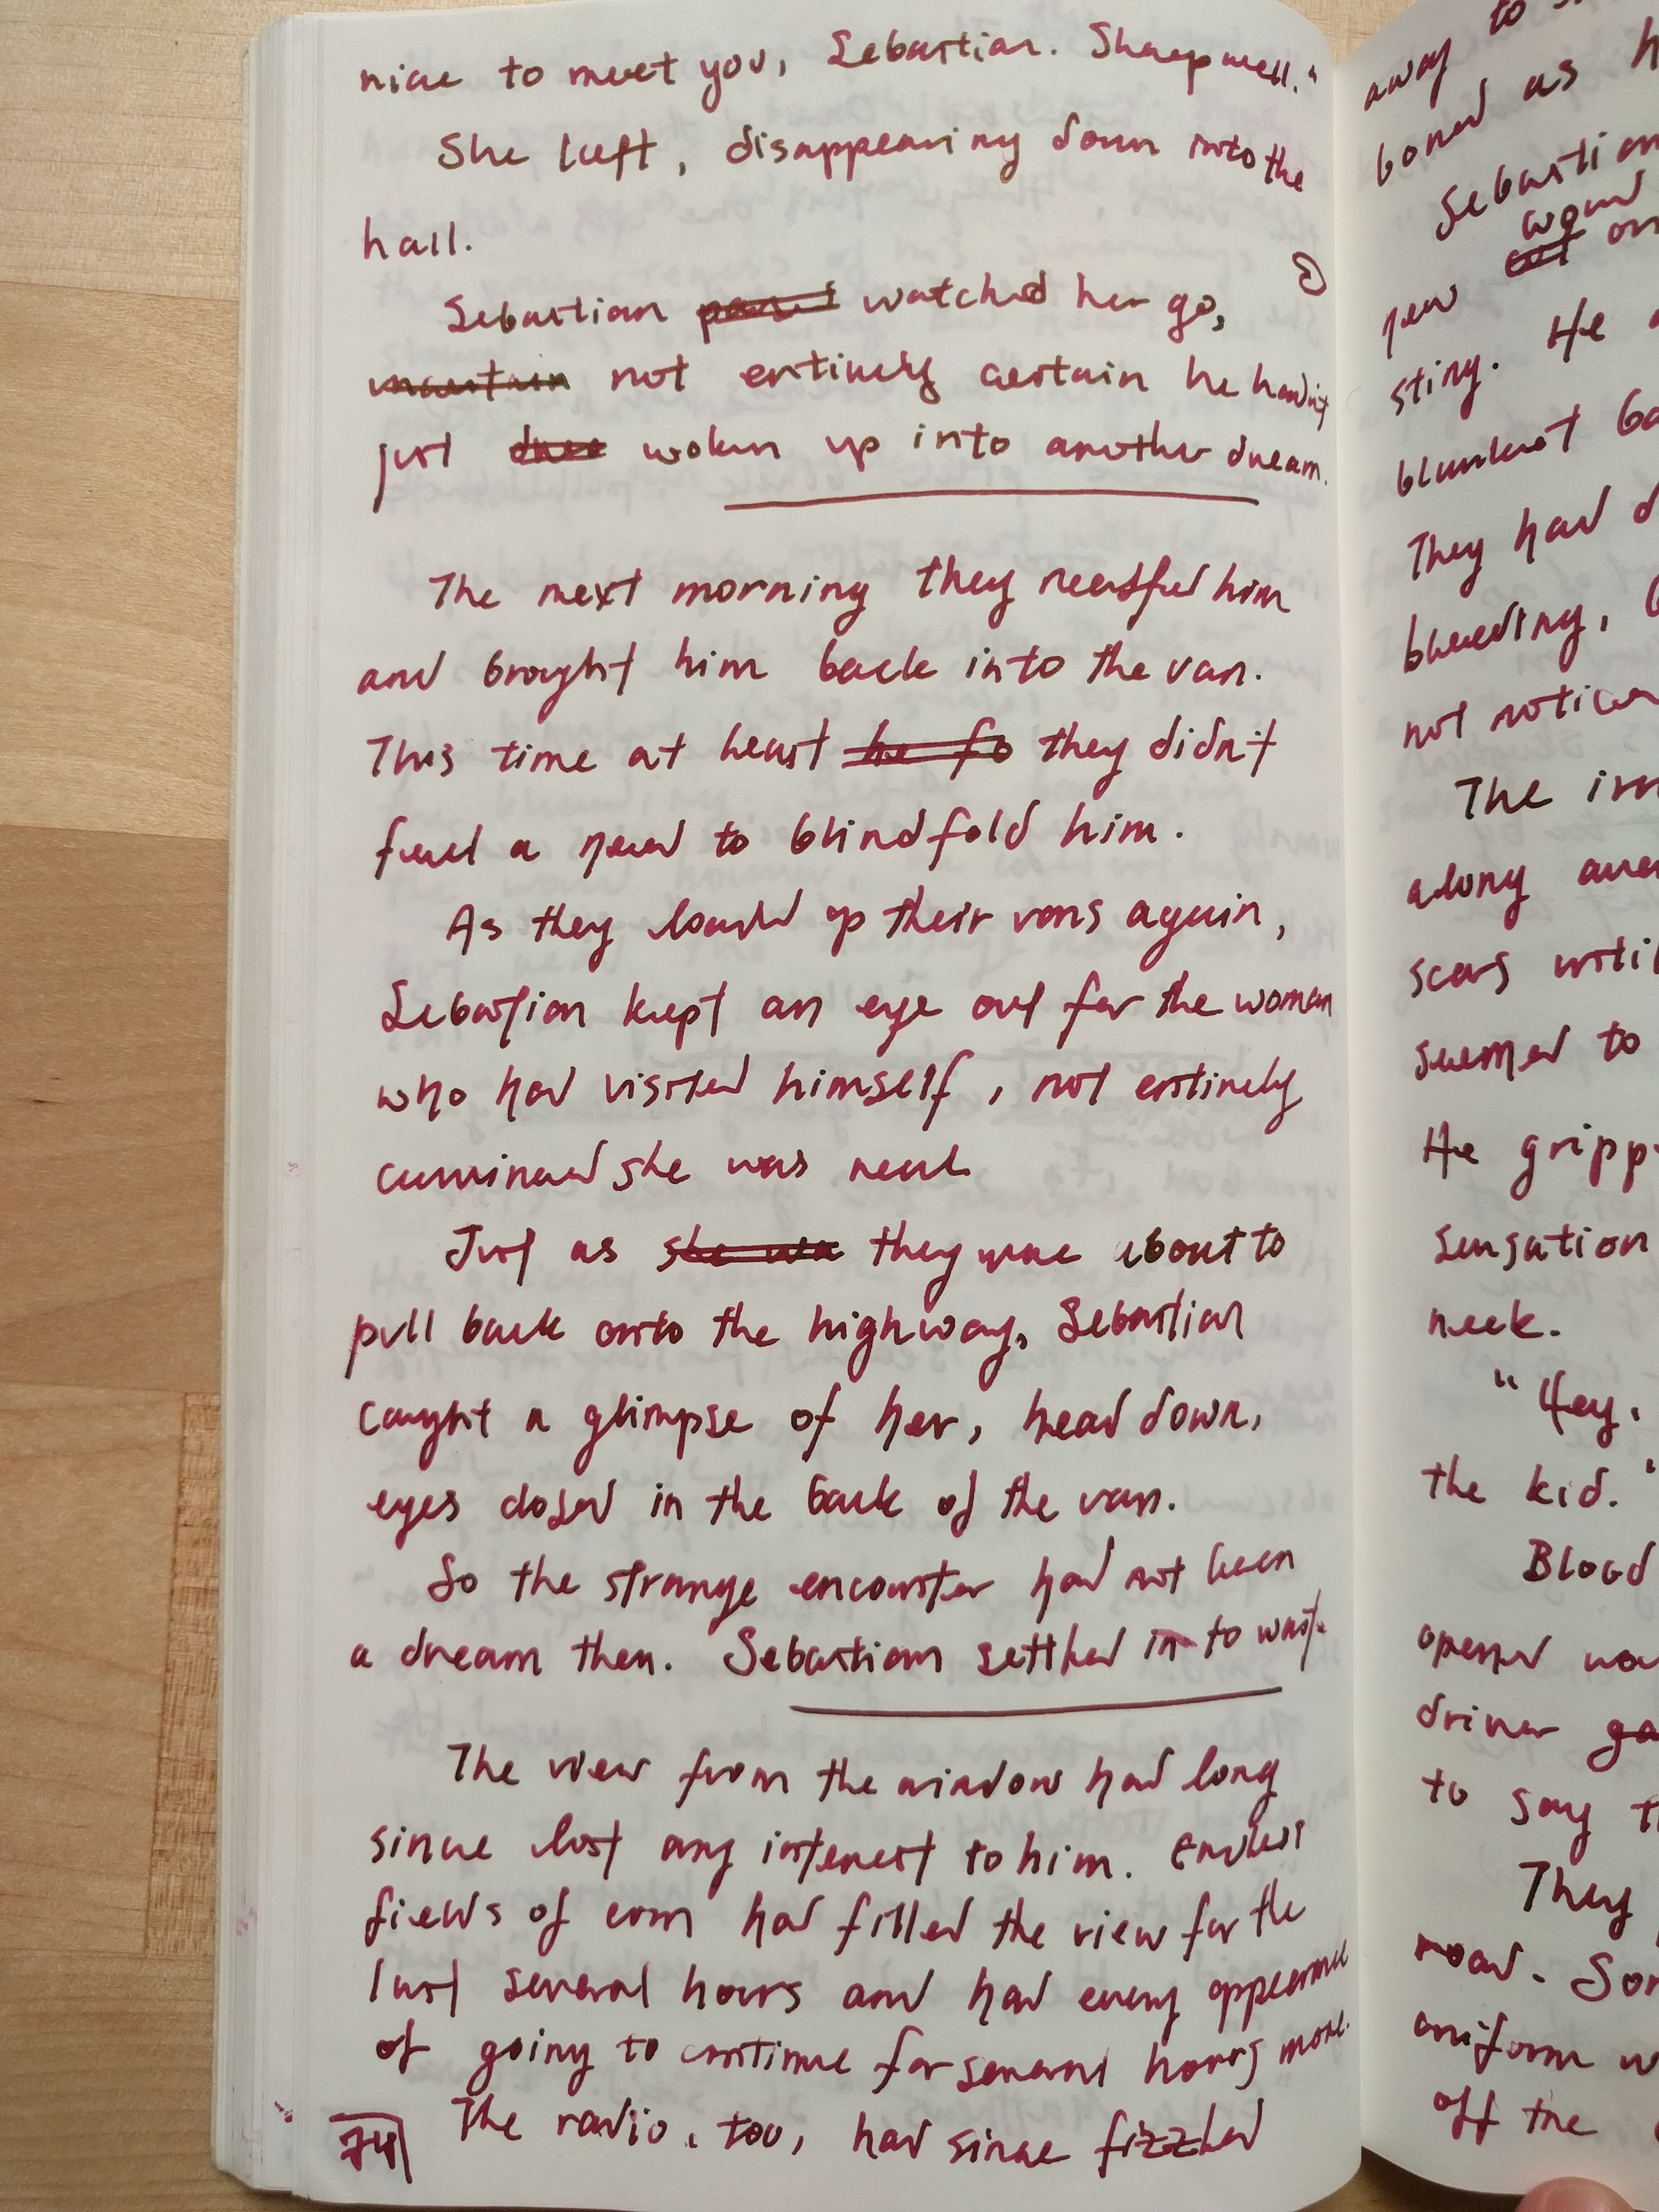 nice to meet you, Sebastian. Sleep well."
She left, disappearing down into the
hall.
Sebastian watched her go,
uncertain not entirely certain he hadn't
just woken up into another dream.
The next morning they
him
and brought him back into the van.
This time at least he fo they didn't
feel a need to blindfold him.
As they loaded up their vans again,
Sebastian kept an eye out for the woman
who had visited himself, not entirely
convinced she was real.
Just as she wa they were about to
pull back onto the highway, Sebastian
caught a glimpse of her, head down,
eyes closed in the back of the van.
So the strange encounter had not been
a dream then. Sebastian settled in to wait.
The view from the window had long
since lost any interest to him. Endless
fields of corn had filled the view for the
last several hours and had every appearance
of going to continue for several hours more.
The radio, too, had since fizzled
74
away to
boned as
Sebastian
wound
cut on
new
sting. He
blanket
They had
bleeding,
not notice
The
along
scars until
seemed to
He
sensation
neck.
"Hey,
the kid."
Blood
opened
driver
to say
They
road.
uniform
off the